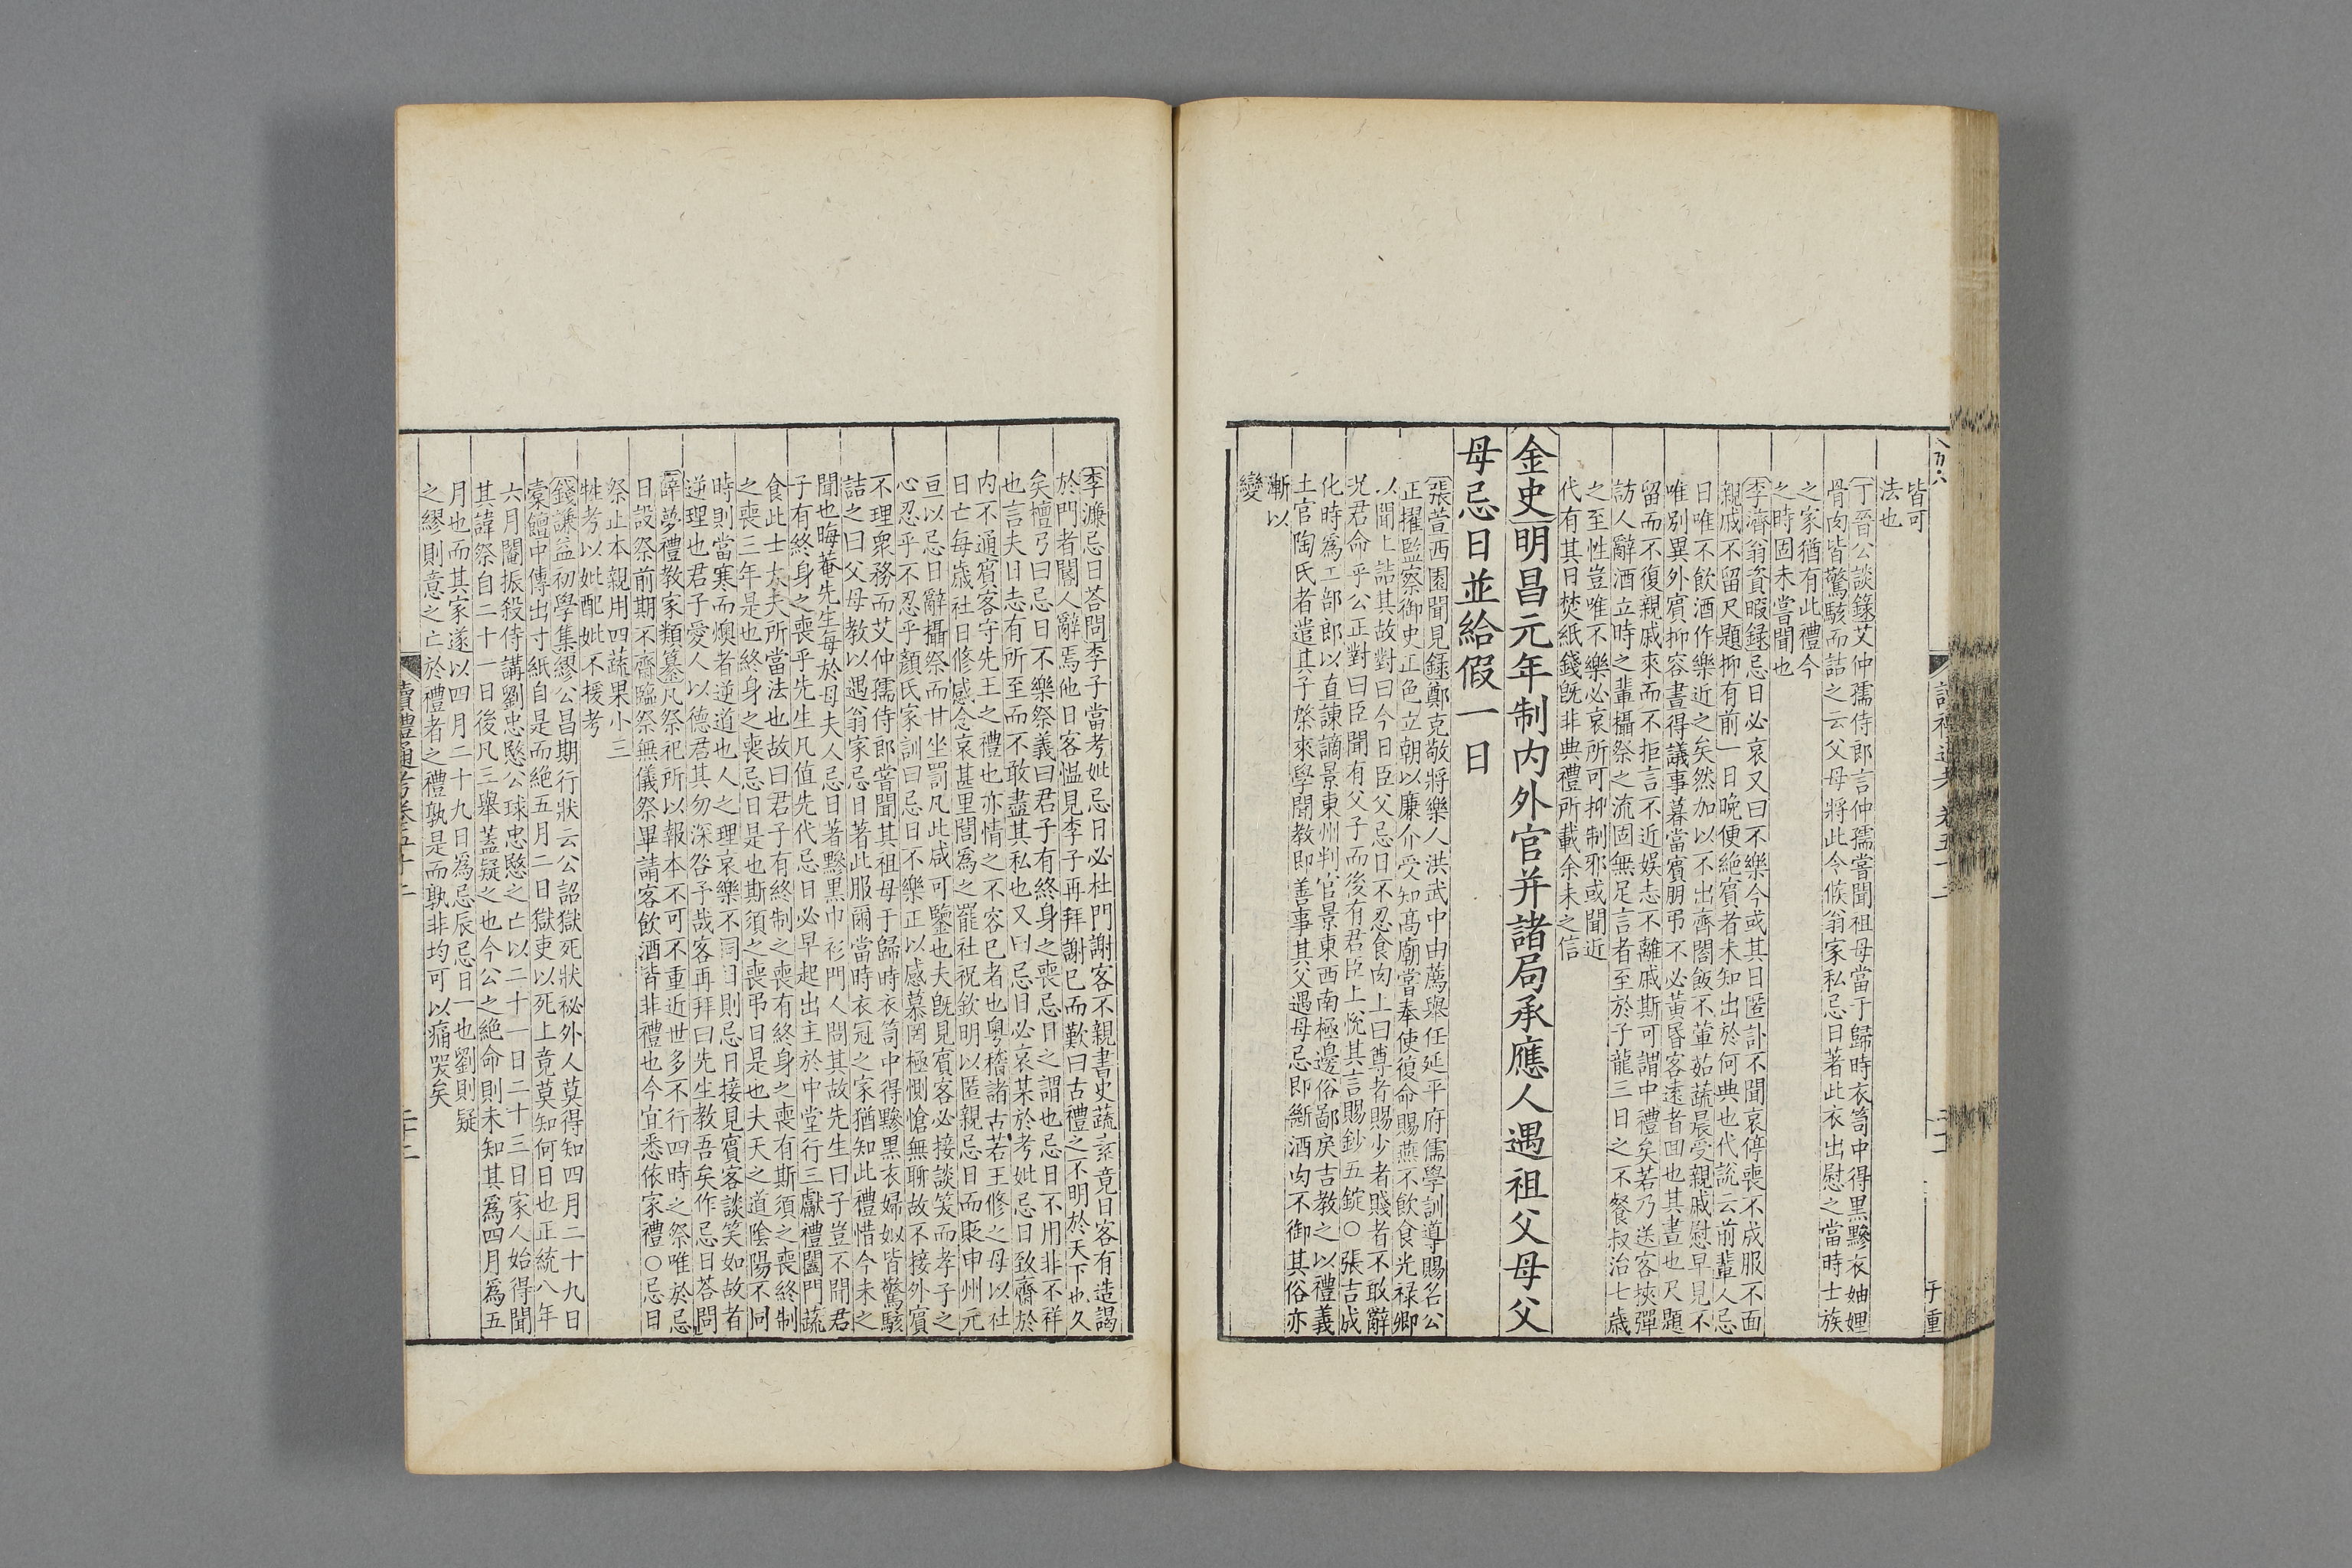 皆可
法也
丁晉公談錄艾仲孺侍郎言仲孺嘗聞祖母當于歸時衣笥中得黑黲衣妯娌
骨肉皆驚駭而詰之云父母將此令候翁家私忌日著此衣出慰之當時士族
之家猶有此禮今
之時固未嘗聞也
李濟翁資暇錄忌日必哀又曰不樂今或其日匿訃不聞哀停喪不成服不面
親戚不留尺題抑有前一日晚便絕賓者未知出於何典也代說云前輩人忌
日唯不飲酒作樂近之矣然加以不出齋閤飯不葷茹蔬晨受親戚慰早見不
唯別異外賓抑容晝得議事暮當賓朋弔不必黃昏客遠者回也其晝也尺題
留而不復親戚來而不拒言不近娛志不離戚斯可謂中禮矣若乃送客挾彈
訪人辭酒立時之輩攝祭之流固無足言者至於子龍三日之不餐叔治七歲
之至性豈唯不樂必哀所可抑制邪或聞近
代有其日焚紙錢旣非典禮所載余未之信
金史明昌元年制内外官并諸局承應人遇祖父母父
母忌日並給假一日
張萱西園聞見錄鄭克敬將樂人洪武中由薦舉任延平府儒學訓導賜名公
正擢監察御史正色立朝以廉介受知高廟嘗奉使復命賜燕不飲食光祿卿
以聞上詰其故對曰今日臣父忌日不忍食肉上曰尊者賜少者賤者不敢辭
况君命乎公正對曰臣聞有父子而後有君臣上悅其言賜鈔五錠○張吉成
化時爲工部郎以直諫謫景東州判官景東西南極邊俗鄙戾吉教之以禮義
土官陶氏者遣其子棨來學聞教即善事其父遇母忌即斷酒肉不御其俗亦
漸以
變
李濂忌日荅問李子當考妣忌日必杜門謝客不親書史蔬素竟日客有造謁
於門者閽人辭焉他日客慍見李子再拜謝已而歎曰古禮之不明於天下也久
矣檀弓曰忌日不樂祭義曰君子有終身之喪忌日之謂也忌日不用非不祥
也言夫日志有所至而不敢盡其私也又曰忌日必哀某於考妣忌日致齋於
内不通賓客守先王之禮也亦情之不容已者也粵稽諸古若王修之母以社
日亡每歲社日修感念哀甚里閭爲之罷社祝欽明以匿親忌日而貶申州元
亘以忌日辭攝祭而甘坐罰凡此咸可鑒也夫旣見賓客必接談笑而孝子之
心忍乎不忍乎顏氏家訓曰忌日不樂正以感慕罔極惻愴無聊故不接外賓
不理衆務而艾仲孺侍郎嘗聞其祖母于歸時衣笥中得黲黑衣婦姒皆驚駭
詰之曰父母教以遇翁家忌日著此服爾當時衣冠之家猶知此禮惜今未之
聞也晦菴先生每於母夫人忌日著黲黑巾衫門人問其故先生曰子豈不聞君
子有終身之喪乎先生凡值先代忌日必早起出主於中堂行三獻禮闔門蔬
食此士大夫所當法也故曰君子有終制之喪有終身之喪有斯須之喪終制
之喪三年是也終身之喪忌日是也斯須之喪弔日是也夫天之道陰陽不同
時則當寒而燠者逆道也人之理哀樂不同日則忌日接見賓客談笑如故者
逆理也君子愛人以德君其勿深咎予哉客再拜曰先生教吾矣作忌日荅問
辭夢禮教家類纂凡祭祀所以報本不可不重近世多不行四時之祭唯於忌
日設祭前期不齋臨祭無儀祭畢請客飲酒皆非禮也今宜悉依家禮○忌日
祭止本親用四蔬果小三
牲考以妣配妣不援考
錢謙益初學集繆公昌期行狀云公詔獄死狀祕外人莫得知四月二十九日
棠饘中傳出寸紙自是而絕五月二日獄吏以死上竟莫知何日也正統八年
六月閹振殺侍講劉忠愍公球忠愍之亡以二十一日二十三日家人始得聞
其諱祭自二十一日後凡三舉蓋疑之也今公之絕命則未知其爲四月爲五
月也而其家遂以四月二十九日爲忌辰忌日一也劉則疑
之繆則意之亡於禮者之禮孰是而孰非均可以痛哭矣
讀禮通考卷五十二
二十二